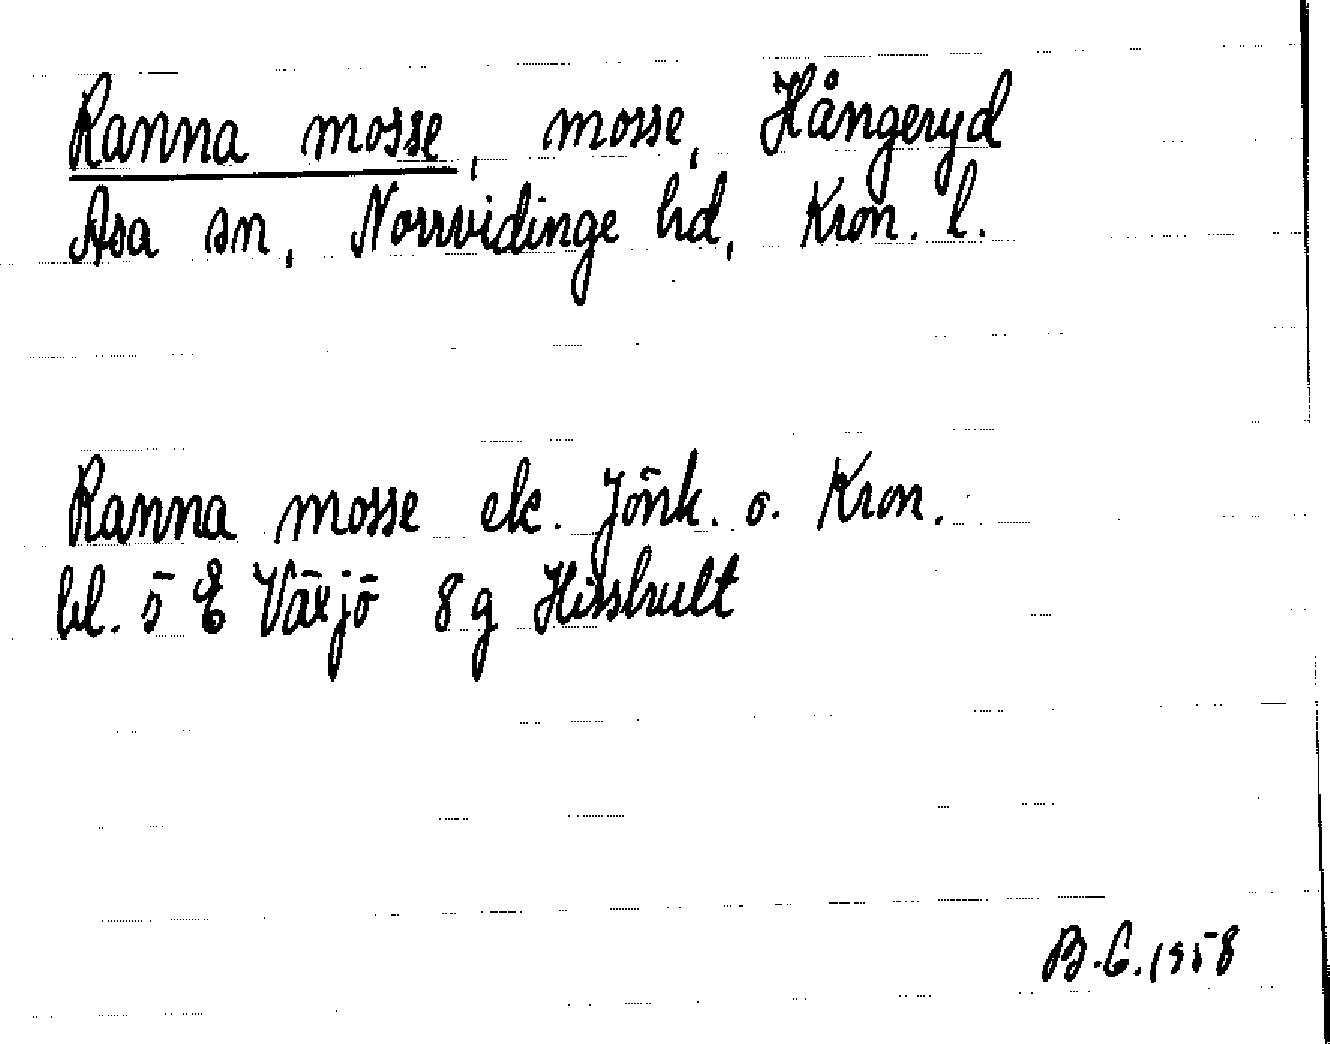 Ranna mosse, mosse, Hångeryd
Asa sn, Norrvidinge hd, Kron. l.
Ranna mosse ek. Jönk. o. Kron.
bl. 5 E Växjö 8g Hissbult
B.G.1958